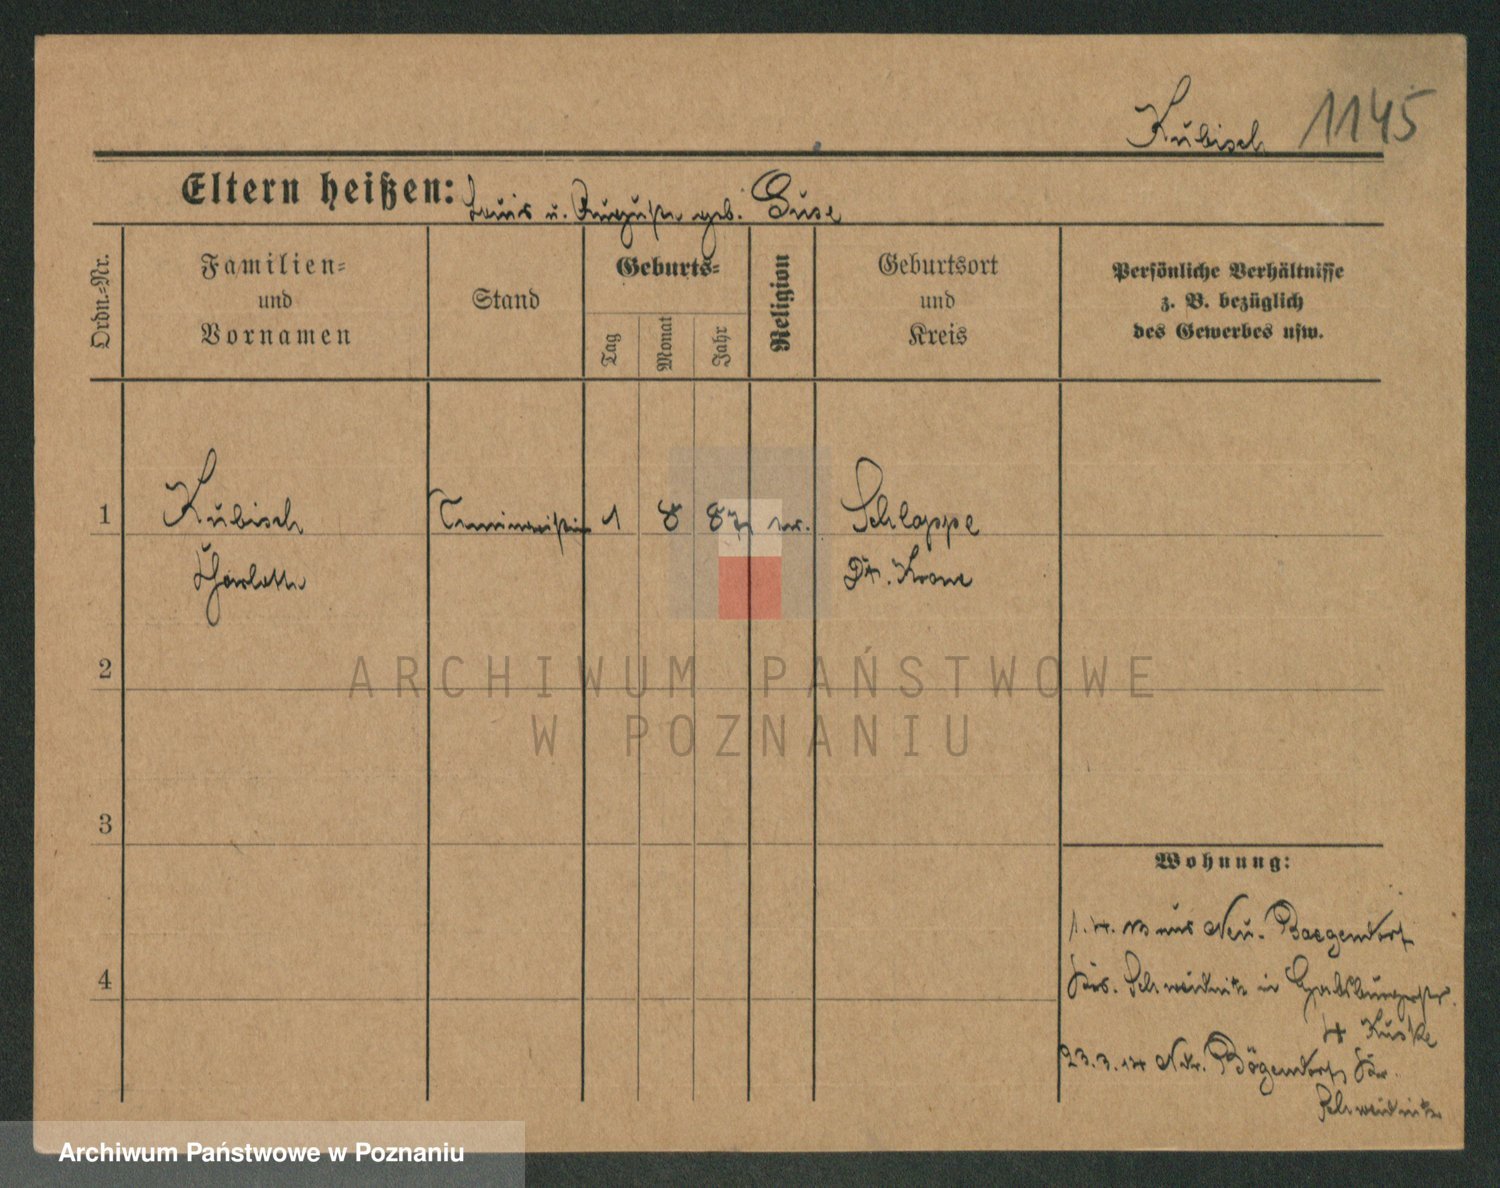 Kubisch 1145
Eltern heißen: Louis u. Auguste geb. Buse
Ordn.-Nr.
Familien-
und
Vornamen
Stand
Geburts-
Tag
Monat
Jahr
Religion
Geburtsort
und
Kreis
Persönliche Verhältnisse
z. B. bezüglich
des Gewerbes usw.
1 Kubisch 1 8 87 ev. Schloppe
Charlotte Dt. Krone
2
3
4
Wohnung:
1. 4. 13 aus Neu-Boegendorf
Krs. Schweidnitz in Habsburgerstr.
4 Kuske
23.3.14 Ndr. Bögendorf, Kr.
Schweidnitz
ARCHIWUM PAŃSTWOWE
W POZNANIU
Archiwum Państwowe w Poznaniu